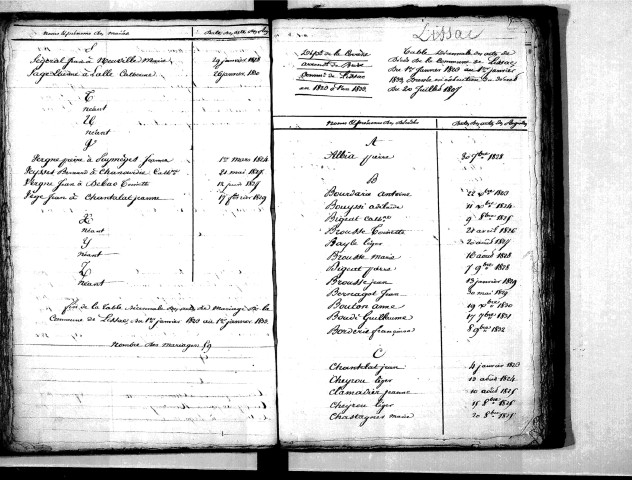 Noms et prénoms des mariés Dates des actes des Reg
S
Ségéral Jean à Neuville Marie 29 janvier 1828
Sage Pierre à Salle Catherine 26 janvier 1830
T
néant
U
néant
V
Vergne pierre à Puymèges Jeanne 1er mars 1824
Veyssès Bernard à Chanourdie Cathne 21 mai 1825
Vergne Jean à Delbac Toinette
Vège Jean à Chantalat jeanne 17 fbre 1829
X
néant
Y
néant
Z
néant
fin de la table décennale des actes de Mariage de la
Commune de Lissac, du 1er janvier 1823 au 1er janvier 1833.
Nombre des mariages 59
Lissac
Dépt de la Corrèze
arromt de Brive
Commne de Lissac
an 1823 à l'an 1833
Table décennale des actes de
Décès de la commune de Lissac,
du 1er janvier 1823 au 1er janvier
1833, Dressée en exécution du décret
du 20 Juillet 1807
Noms et prénoms des décédés Dates des actes des Registres
A
Albia pierre 30 7bre 1828
B
Bourdarie antoine 22 xbre 1823
Bouyssi adélaïde 11 xbre 1824
Bigeat cathne 9 8bre 1825
Brousse Toinette 21 avril 1826
Bayle léger 20 août 1827
Brousse marie 16 août 1828
Bigeat pierre 7 9bre 1828
Brousse jean 13 janvier 1829
Bernagot Jean 20 mai 1829
Bouton anne 19 xbre 1830
Boudi Guillaume 17 7bre 1831
Borderie françoise 8 9bre 1832
C
Chantalat jean 4 janvier 1823
Cheyrou léger 12 août 1824
Clamadier jeanne 10 août 1825
Cheyrou léger 15 8bre 1825
Chastagner marie 20 8bre 1825